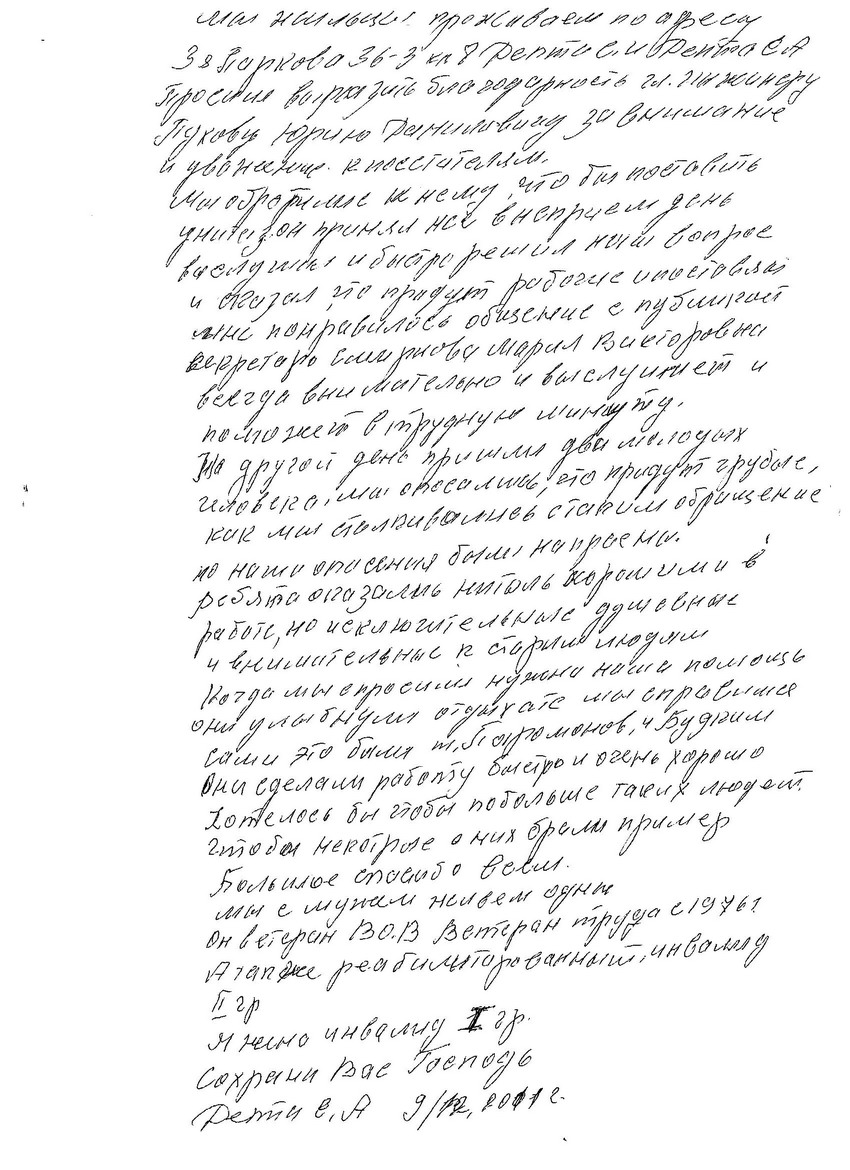 мы жильцы проживаем по адресу
3я Паркова 36-3 кв 8 Репта С.И Репта Е А
Просим выразить благодарность гл. инженеру
Пухову Юрию Даниловичу за внимание
и уважение к посетителям.
Мы обротились к нему, что бы поставить
унитаз, он принял нас в неприем день
выслушал и быстро решил наш вопрос
и сказал, что придут рабочие и поставят
мне понравилось общение с публикой
секретарь Смирнова Мария Викторовна
всегда внимательно и выслушает и
поможет в трудную минуту.
На другой день пришли два молодых
человека, мы опосались, что придут грубые,
как мы сталкивались с таким обращение
но наши опасения были напрасны.
ребята оказались нитоль хорошими в
работе, но исключительные душевные
и внимательные к старым людям
Когда мы спросили нужна наша помощь
они улыбнули отдыхате мы справимся
сами это были т. Парамонов, и Будким
Они сделали работу быстро и очень хорошо
Хотелось бы чтобы побольше таких людей.
чтобы некотрые о них брали пример
Большое спасибо всем.
мы с мужем живем одни
Он ветеран ВО.В Ветеран труда с 1976 г.
А также реабилитированный, инвалид
II гр
Я жена инвалид I гр.
Сохрани Вас Господь
Репта Е, А 9/12, 2011 г.